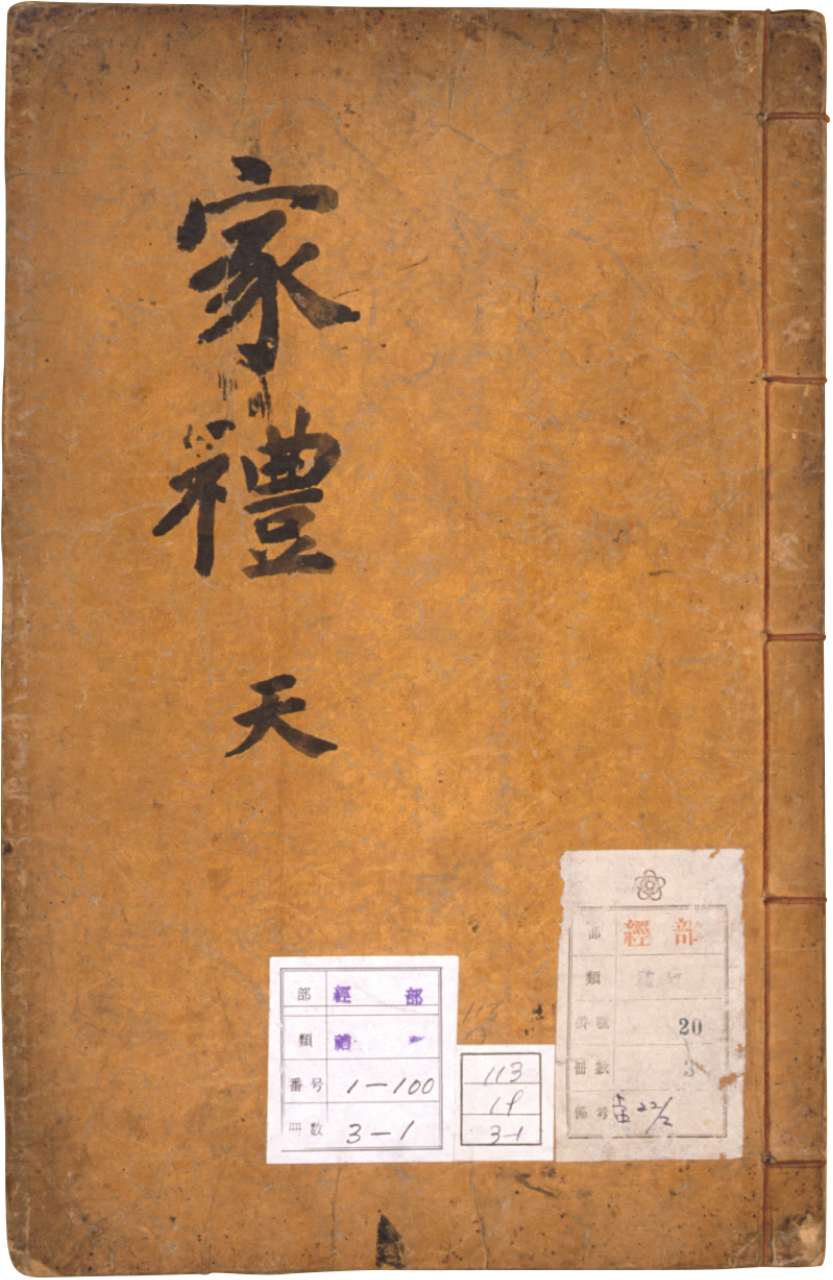 家禮
天
部 經部
類 禮
番号 1-100
冊数 3-1
113
19
3-1
部 經部
類
番號 20
冊數 3
備考 22/2